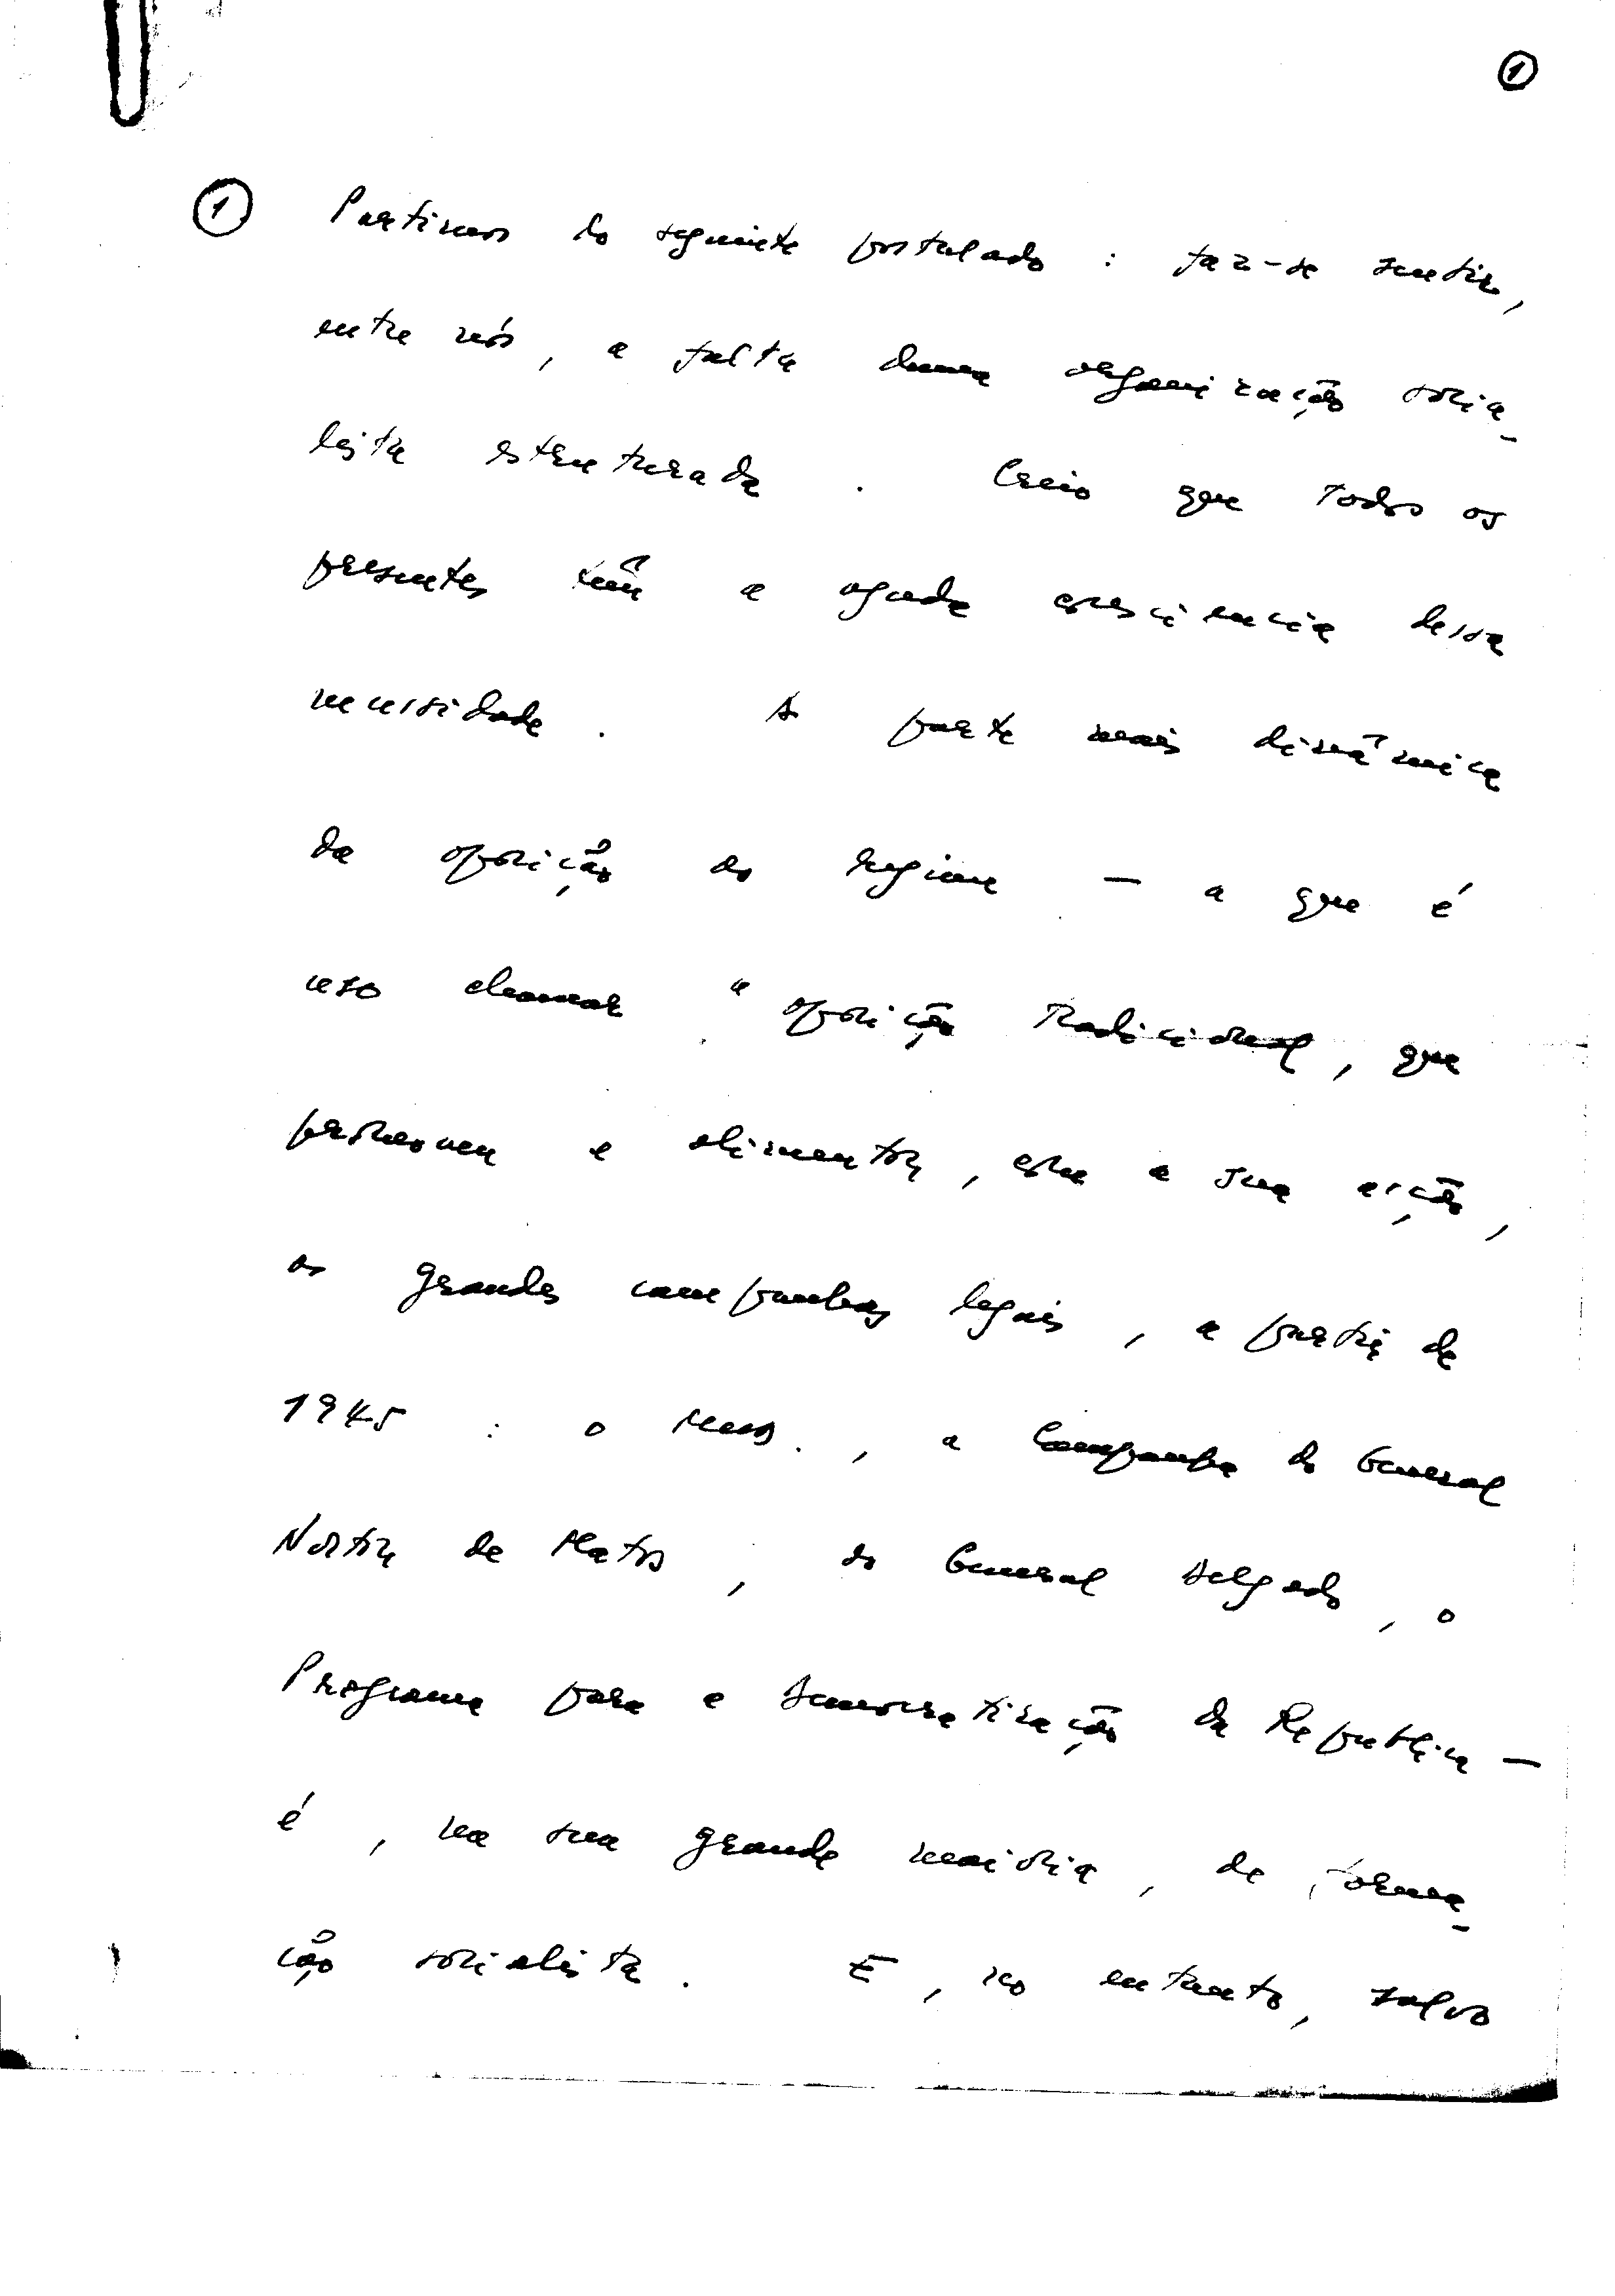 1
1 Partimos do seguinte postulado : faz-se sentir,
entre nós, a falta duma organização socia-
lista estruturada . Creio que todos os
presentes têm a aguda consciencia dessa
necessidade . A parte mais dinâmica
da oposição ao regime — a que é
uso chamar a oposição tradicional, que
promoveu e alimentou, com a sua acção,
as grandes campanhas legais, a partir de
1945 : o MUD., a Campanha do General
Norton de Matos, do General Delgado, o
Programa para a Democratização da Republica —
é, na sua grande maioria, de forma-
ção socialista . E, no entanto, salvo